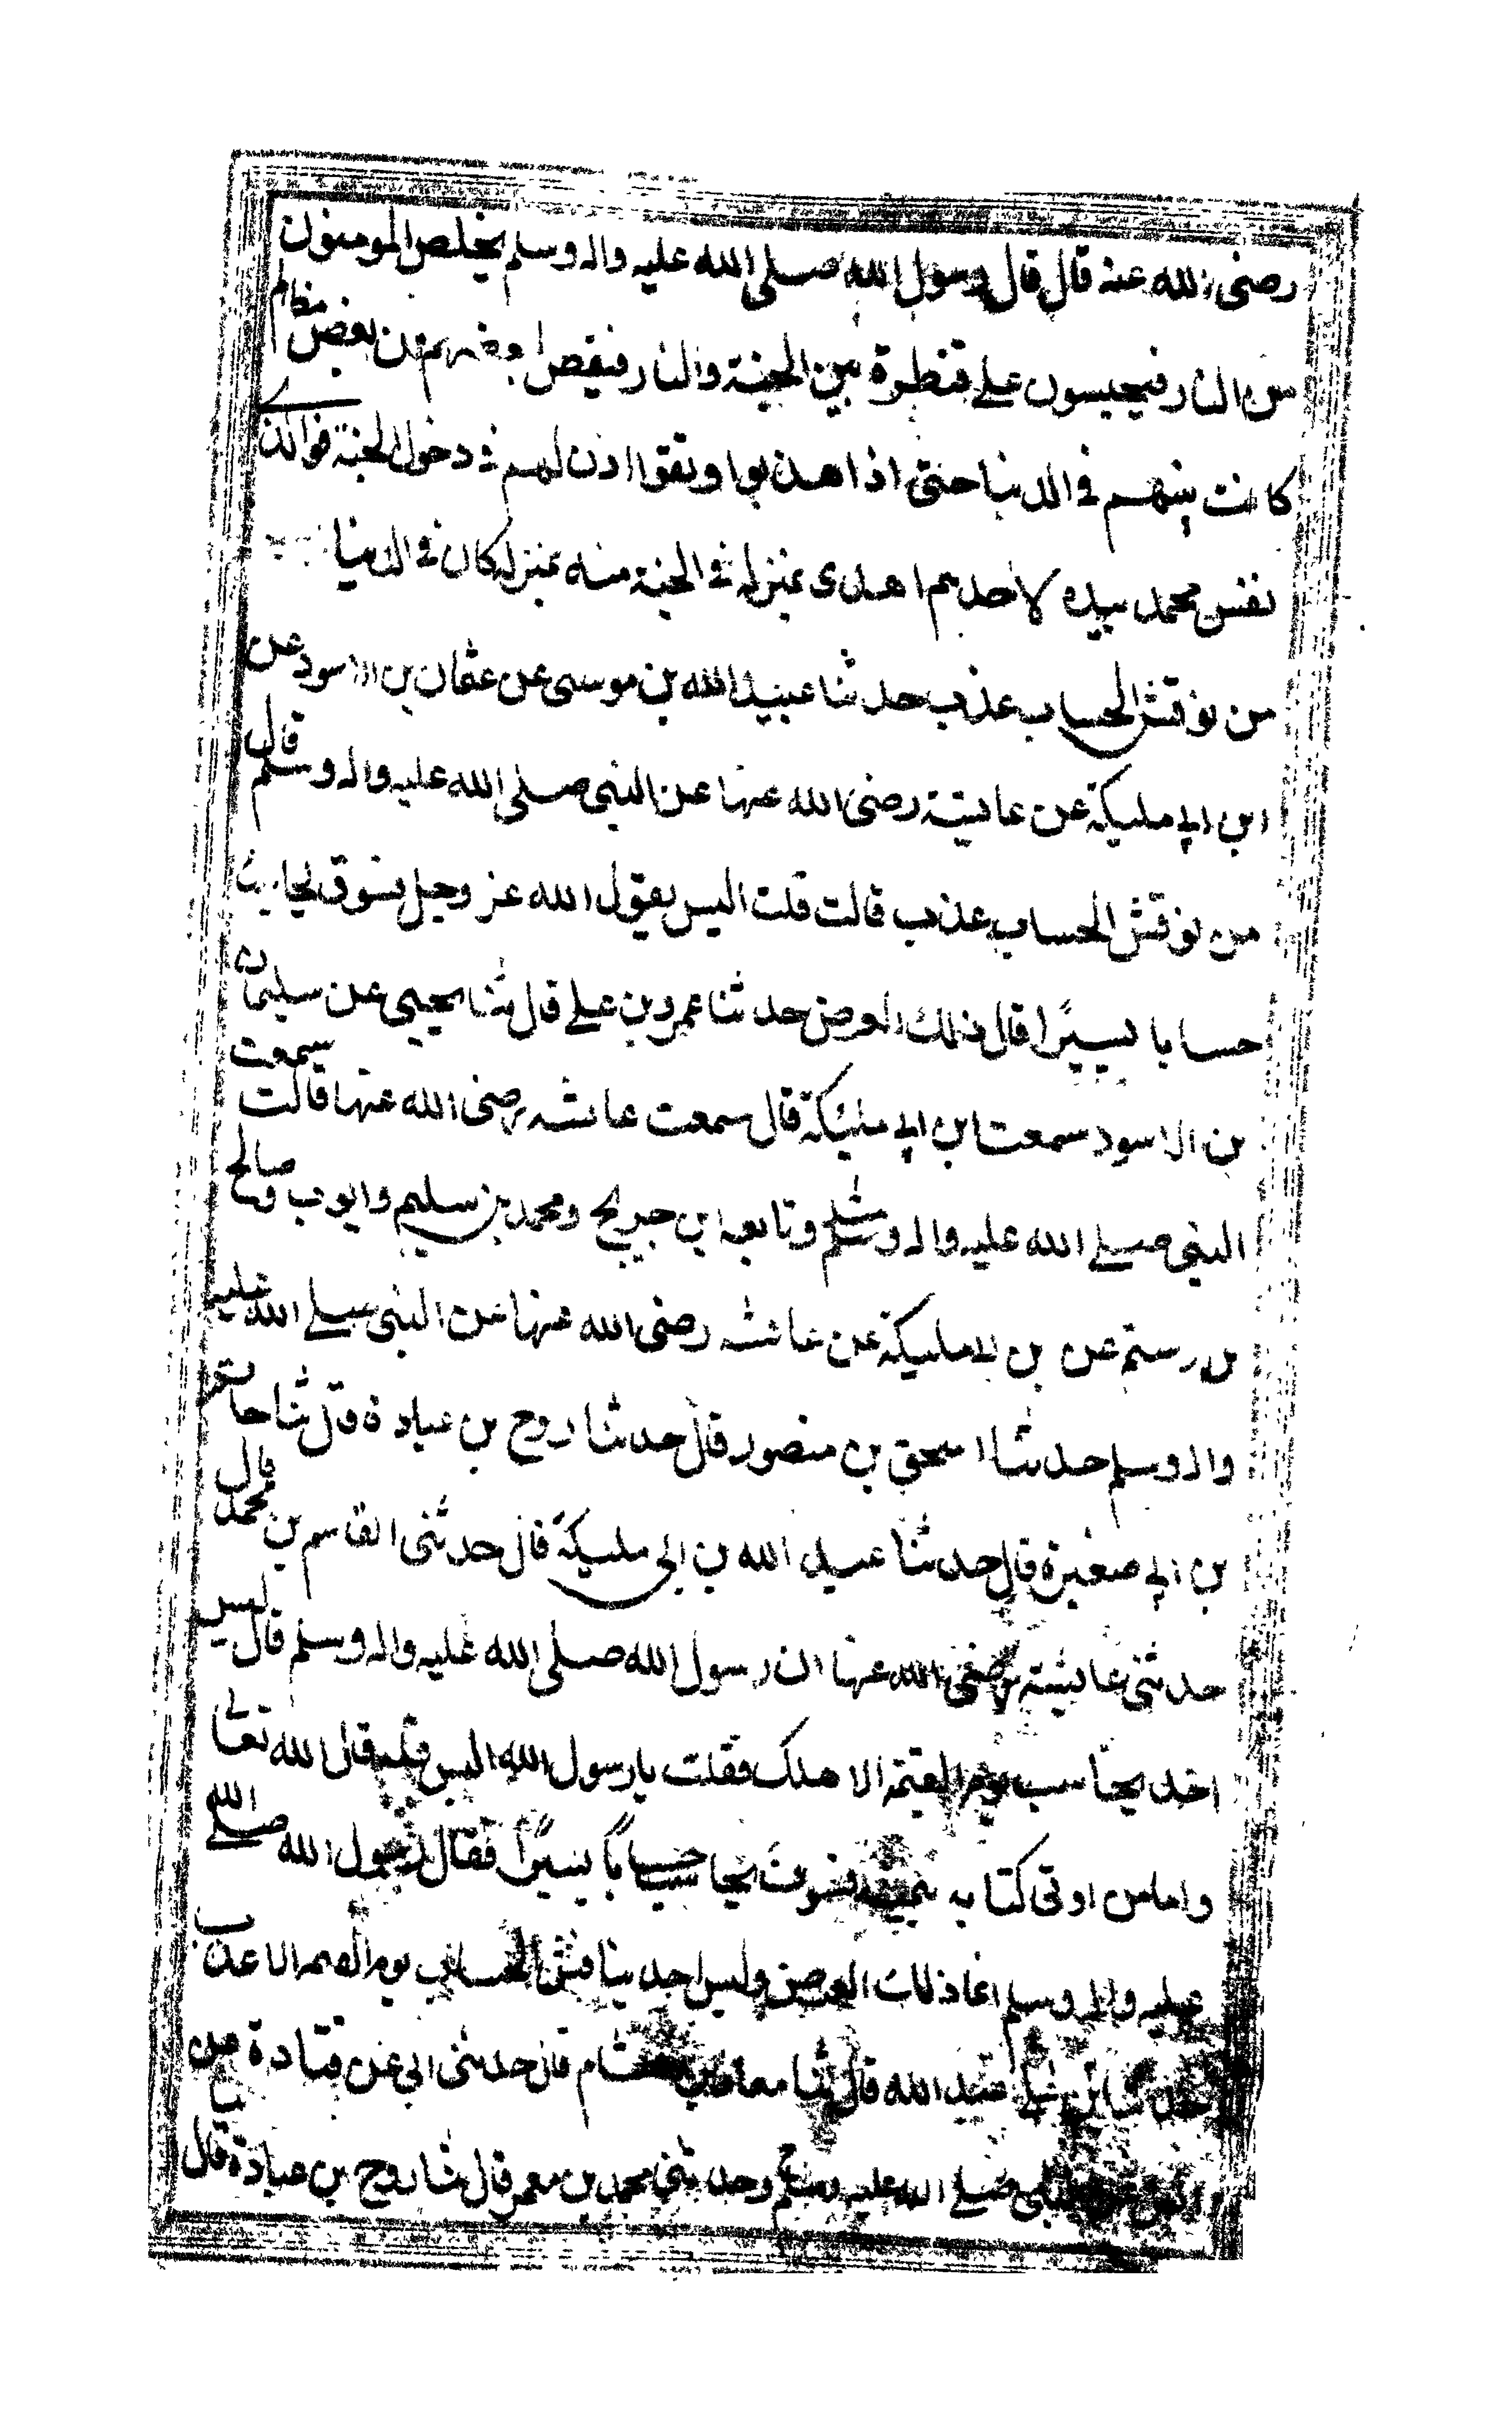 رضي الله عنه قال قال رسول الله صلى الله عليه واله وسلم يخلص المومنون
من النار فيحبسون على قنطرة بين الجنة والنار فيقص لبعضهم من بعض مظالم
كانت بينهم في الدنيا حتى اذا هذبوا ونقوا اذن لهم في دخول الجنة فوالذي
نفس محمد بيده لاحدهم اهدى بمنزله في الجنة منه بمنزله كان في الدنيا
من نوقش الحساب عذب حدثنا عبيد الله بن موسى عن عثمان بن الاسود عن
ابن ابي مليكة عن عايشة رضى الله عنها عن النبي صلى الله عليه واله وسلم قال
من نوقش الحساب عذب قالت قلت اليس يقول الله عز وجل فسوف يحاسب
حسابا يسيرًا قال ذلك العرض حدثنا عمرو بن علي قال ثنا يحيى عن سليمان
بن الاسود سمعت ابن ابي مليكة قال سمعت عائشه رضى الله عنها قالت سمعت
النبي صلى الله عليه واله وسلم وتابعه ابن جريح ومحمد بن سليم وايوب وصالح
بن رستم عن بن ابي مليكة عن عائشه رضى الله عنها عن النبي صلى الله عليه
واله وسلم حدثنا اسحق بن منصور قال حدثنا روح بن عبادة قال ثنا حاتم
بن ابي صغيرة قال حدثنا عبد الله بن ابي مليكة قال حدثني القاسم بن محمد قال
حدثتني عايشة رضي الله عنها ان رسول الله صلى الله عليه واله وسلم قال ليس
احد يحاسب يوم القيمة الا هلك فقلت يا رسول الله اليس قد قال الله تعالى
واما من اوتى كتابه بيمينه فسوف يحاسب حسابًا يسيرًا فقال رسول الله صلى الله
عليه واله وسلم انما ذلك العرض وليس احد يناقش الحساب يوم القيمه الا عذب
حدثنا علي بن عبد الله قال ثنا معاذ بن هشام قال حدثنى ابي عن قتادة عن
صلى الله عليه وسلم وحدثني محمد بن معمر قال ثنا روح بن عبادة قال